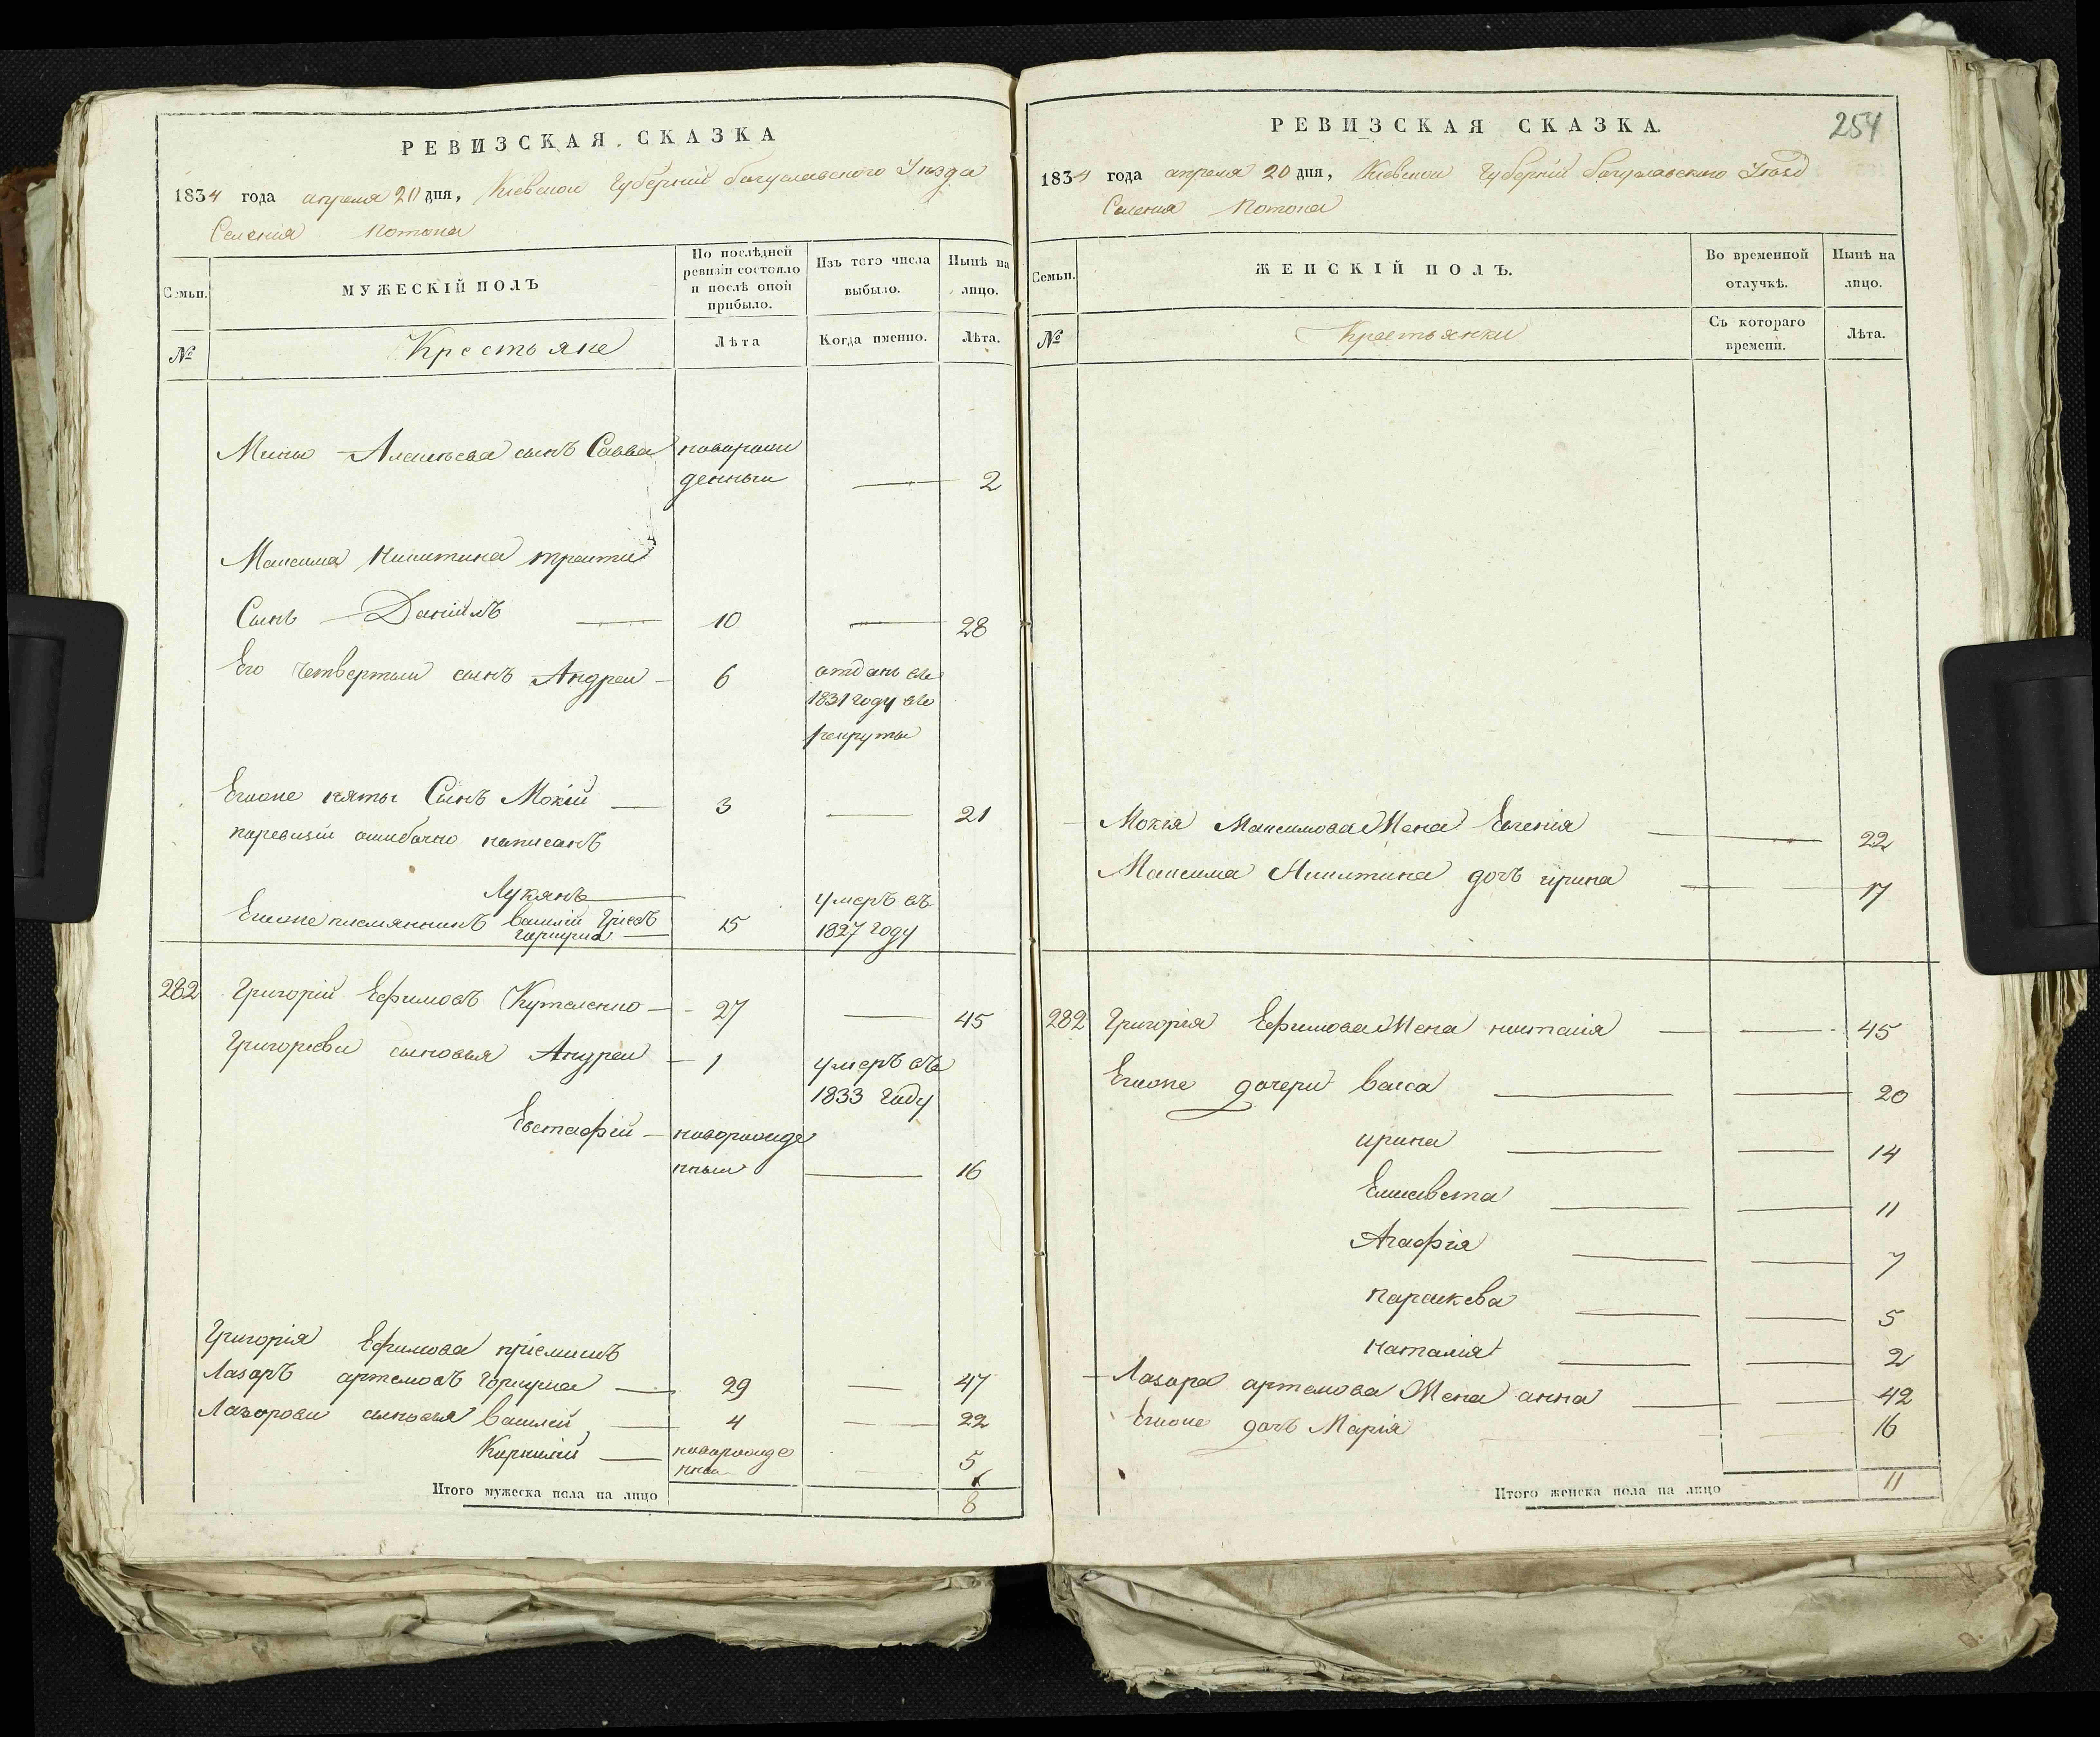 РЕВИЗСКАЯ СКАЗКА
1834 года апреля 20 дня, Кіевской Губерніи богуславского Уезда
Селенія Потока
Семьи.
МУЖЕСКІЙ ПОЛЪ
По послѣдней ревизіи состояло и послѣ оной прибыло.
Изъ того числа выбыло.
Нынѣ на лицо.
№
Крестьяне
Лѣта
Когда именно.
Лѣта.
Мины Алексѣева сынъ Савва новорож
денный — 2
Максима Никитина трети
Сынъ Даніилъ — 10 — 28
Его четвертый сынъ Андрей — 6 отданъ въ
1831 году въ
рекруты
Егоже пяты Сынъ Мокій — 3 — 21
поревизіи ошибочно написанъ
Лукянъ —
Егоже племянникъ василій 15 умеръ въ
1827 году
282 Григорій Ефимовъ Кутеленко — 27 — 45
Григорѣви сыновья Андрей — 1 умеръ въ
1833 году
Евстафій — новорожде
нный — 16
Григорія Ефимова пріемышъ
Лазаръ артемовъ — 29 — 47
Лазорови сыновья Василій — 4 — 22
Корнилій — новорожде
нный — 5
Итого мужеска пола на лицо 8
254
РЕВИЗСКАЯ СКАЗКА.
1834 года апреля 20 дня, Кіевской Губерніи богуславского Уезд
Селенія Потока
Семьи.
ЖЕНСКІЙ ПОЛЪ.
Во временной отлучкѣ.
Нынѣ на лицо.
№
Крестьянки
Съ котораго времени.
Лѣта.
Мокія Максимова Жена Евгенія — — 22
Максима Никитина дочъ ирина — — 17
282 Григорія Ефимова Жена — — 45
Егоже дочери васса — — 20
ирина — — 14
Елисавета — — 11
Агафія — — 7
параскева — — 5
наталія — — 2
Лазара артемова Жена анна — — 42
Егоже дочъ Марія 16
Итого женска пола на лицо 11